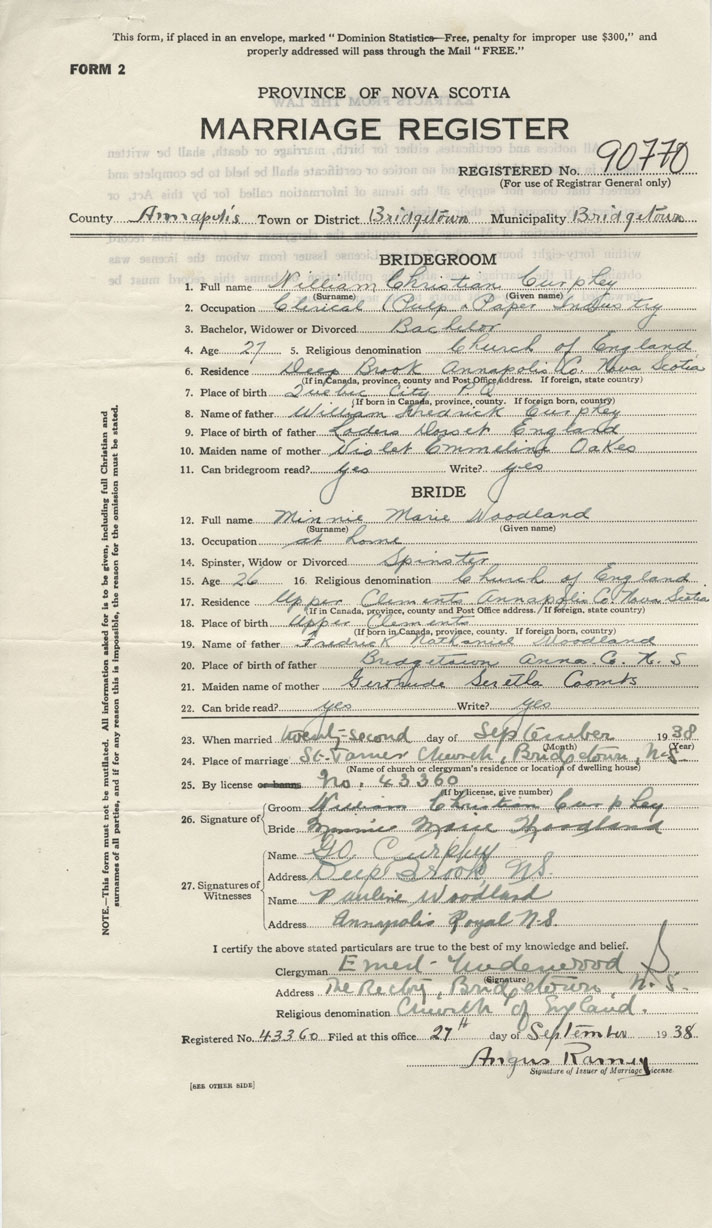 This form, if placed in an envelope, marked "Dominion Statistics—Free, penalty for improper use $300," and
properly addressed will pass through the Mail "FREE."
FORM 2
PROVINCE OF NOVA SCOTIA
MARRIAGE REGISTER
REGISTERED No. 90770
(For use of Registrar General only)
County Annapolis Town or District Bridgetown Municipality Bridgetown
BRIDEGROOM
1. Full name William Christian Curphey
(Surname) (Given name)
2. Occupation Clerical (Pulp & Paper Industry
3. Bachelor, Widower or Divorced Bachelor
4. Age 27 5. Religious denomination Church of England
6. Residence Deep Brook Annapolis Co. Nova Scotia
(If in Canada, province, county and Post Office address. If foreign, state country)
7. Place of birth Quebec City P.Q
(If born in Canada, province, county. If foreign born, country)
8. Name of father William Fredrick Curphey
9. Place of birth of father Loders Dorset England
10. Maiden name of mother Violet Emmeline Oakes
11. Can bridegroom read? yes Write? yes
BRIDE
12. Full name Minnie Marie Woodland
(Surname) (Given name)
13. Occupation at home
14. Spinster, Widow or Divorced Spinster
15. Age 26 16. Religious denomination Church of England
17. Residence Upper Clements Annapolis Co. Nova Scotia
(If in Canada, province, county and Post Office address. If foreign, state country)
18. Place of birth Upper Clements
(If born in Canada, province, county. If foreign born, country)
19. Name of father Fredrick Nathaniel Woodland
20. Place of birth of father Bridgetown Anna. Co. N. S
21. Maiden name of mother Gertrude Seretha Coombs
22. Can bride read? yes Write? yes
23. When married twenty-second day of September 1938
(Month) (Year)
24. Place of marriage St. James Church, Bridgetown, N.S.
(Name of church or clergyman's residence or location of dwelling house)
25. By license or banns No. 43360
(If by license, give number)
26. Signature of Groom William Christian Curphey
Bride Minnie Marie Woodland
27. Signatures of Witnesses
Name Curphey
Address Deep Brook NS.
Name Pauline Woodland
Address Annapolis Royal N.S
I certify the above stated particulars are true to the best of my knowledge and belief.
Clergyman Ernest Underwood
(Signature)
Address The Rectory, Bridgetown N. S.
Religious denomination Church of England.
Registered No. 43360 Filed at this office 27th day of September 1938
Angus Ramey
Signature of Issuer of Marriage License
[SEE OTHER SIDE]
NOTE.—This form must not be mutilated. All information asked for is to be given, including full Christian and
surnames of all parties, and if for any reason this is impossible, the reason for the omission must be stated.